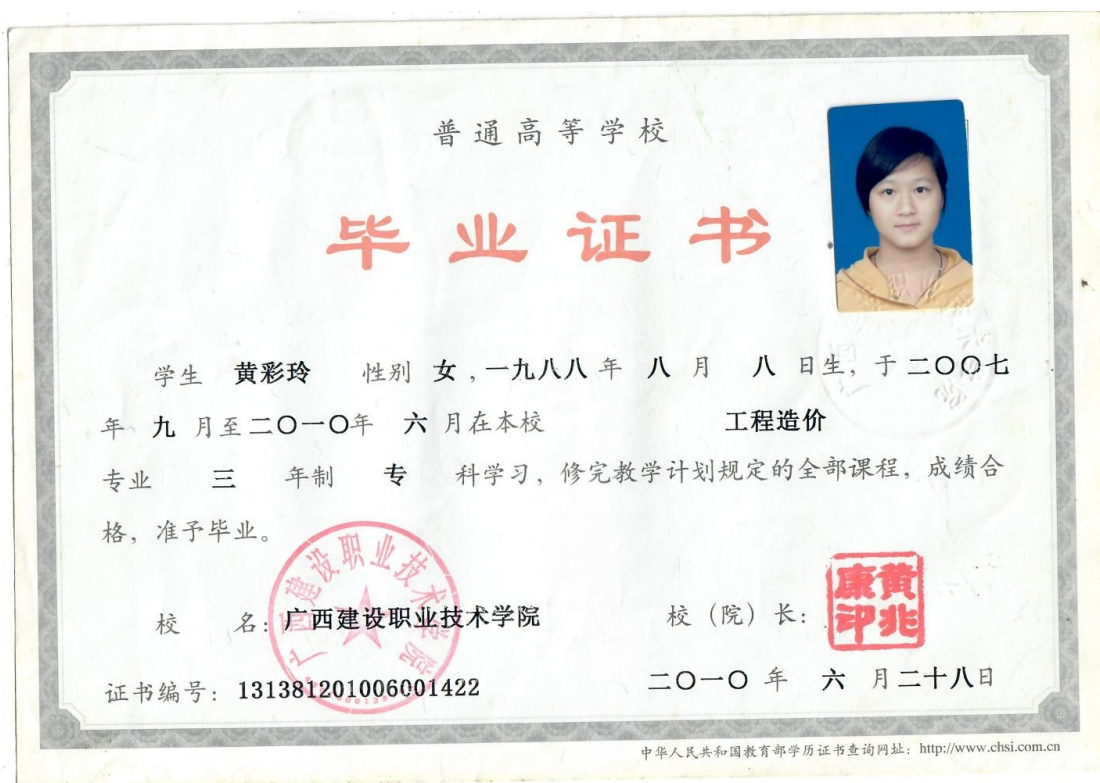 普通高等学校
毕业证书
学生 黄彩玲 性别 女，一九八八年 八 月 八 日生，于二〇〇七
年 九 月至二〇一〇年 六 月在本校 工程造价
专业 三 年制 专 科学习，修完教学计划规定的全部课程，成绩合
格，准予毕业。
广西建设职业技术学院
校 名：广西建设职业技术学院
校（院）长：
黄兆康印
证书编号：131381201006001422
二〇一〇年 六 月二十八日
中华人民共和国教育部学历证书查询网址：http://www.chsi.com.cn